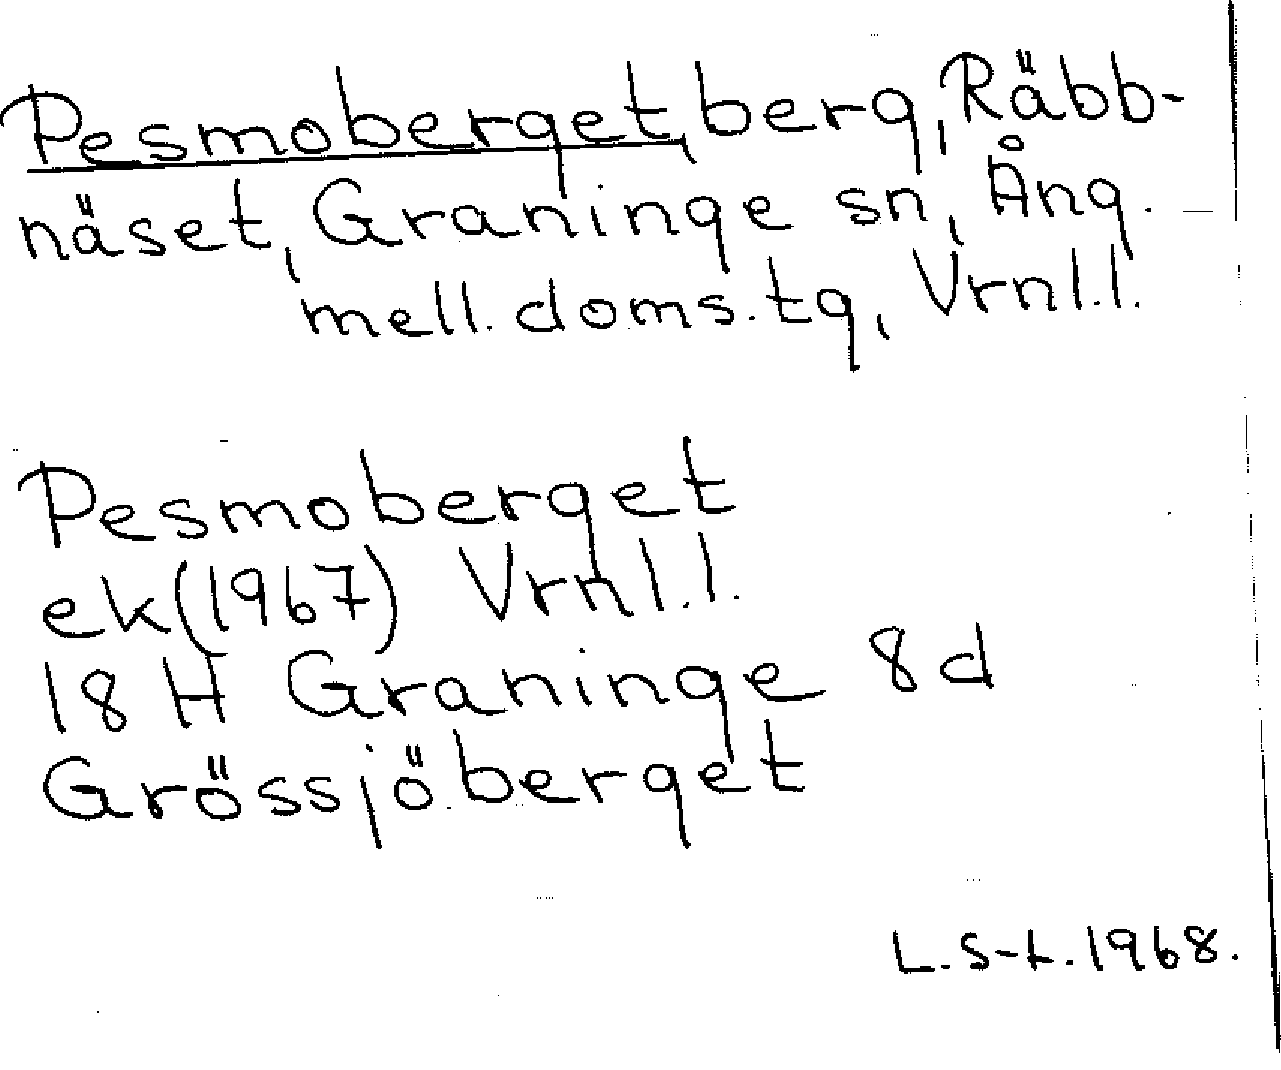 Pesmoberget, berg, Räbb-
näset, Graninge sn, Ång.
mell. doms.tg, Vrnl.l.
Pesmoberget
ek(1967) Vrnl.l.
18 H Graninge 8d
Grössjöberget
L. S-t. 1968.